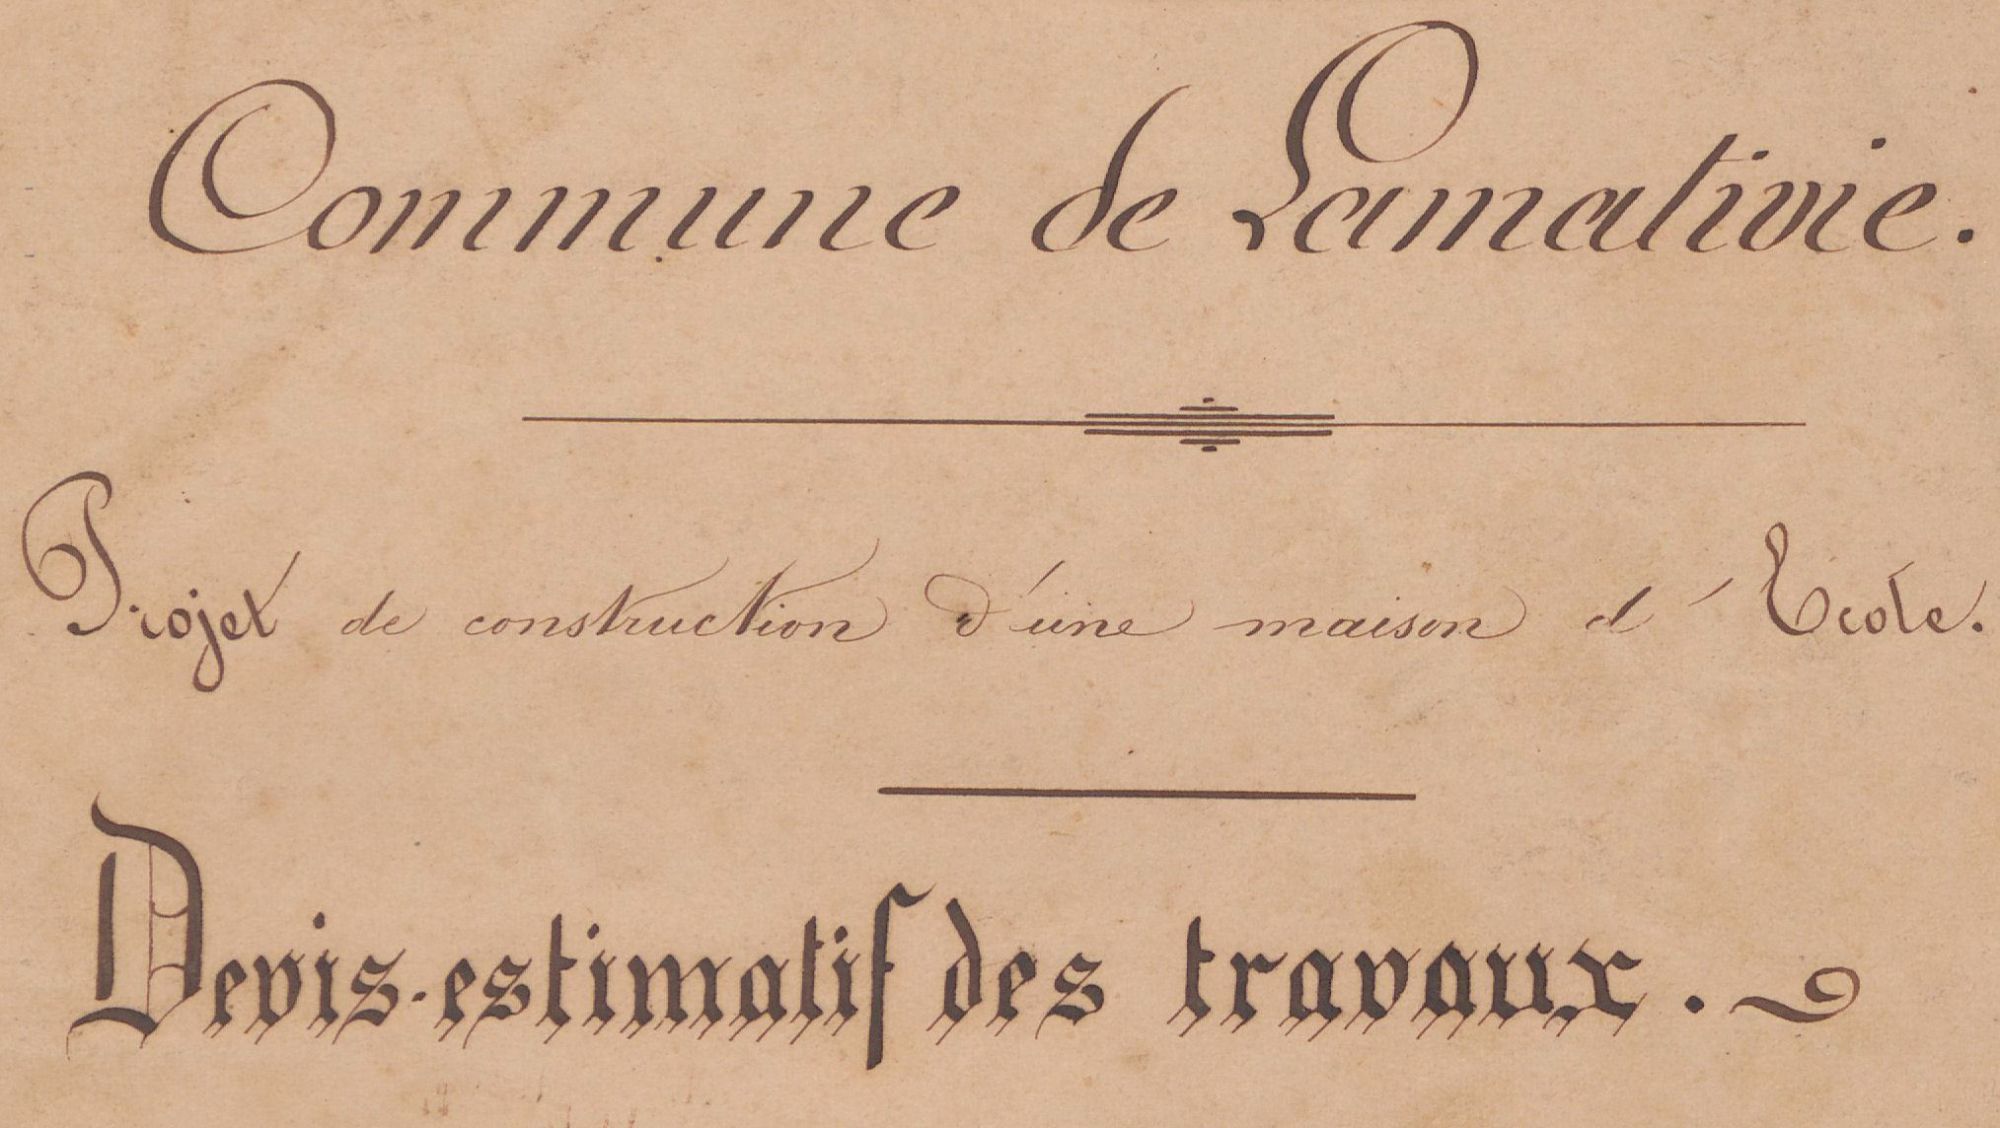 Commune de Lamativie.
Projet de construction d'une maison d'Ecole.
Devis-estimatif des travaux.